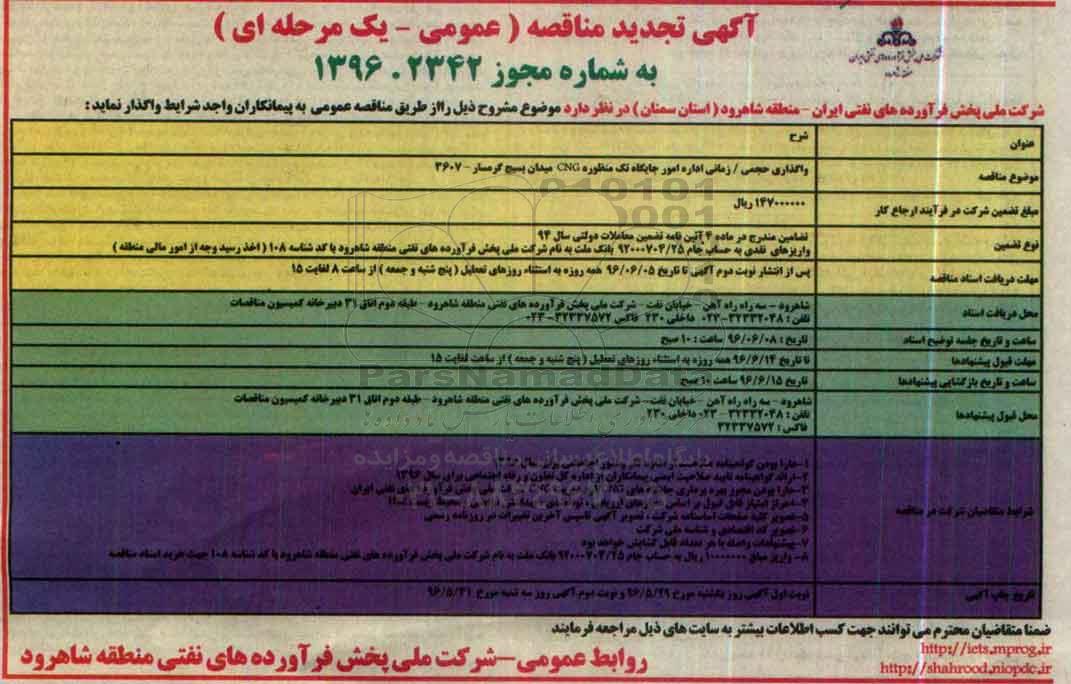 آگهی تجدید مناقصه ( عمومی - یک مرحله ای )
به شماره مجوز ۱۳۹۶.۲۳۴۲
شرکت ملی پخش فرآورده های نفتی ایران
منطقه شاهرود
شرکت ملی پخش فرآورده های نفتی ایران - منطقه شاهرود ( استان سمنان ) در نظر دارد موضوع مشروح ذیل رااز طریق مناقصه عمومی به پیمانکاران واجد شرایط واگذار نماید :
عنوان
شرح
موضوع مناقصه
واگذاری حجمی / زمانی اداره امور جایگاه تک منظوره CNG میدان بسیج گرمسار - ۳۶۰۷
مبلغ تضمین شرکت در فرآیند ارجاع کار
۱۴۷۰۰۰۰۰۰ ریال
نوع تضمین
تضامین مندرج در ماده ۴ آئین نامه تضمین معاملات دولتی سال ۹۴
واریزهای نقدی به حساب جام ۹۲۰۰۰۷۰۴/۲۵ بانک ملت به نام شرکت ملی پخش فرآورده های نفتی منطقه شاهرود با کد شناسه ۱۰۸ ( اخذ رسید وجه از امور مالی منطقه )
مهلت دریافت اسناد مناقصه
پس از انتشار نوبت دوم آگهی تا تاریخ ۹۶/۰۶/۰۵ همه روزه به استثناء روزهای تعطیل ( پنج شنبه و جمعه ) از ساعت ۸ لغایت ۱۵
محل دریافت اسناد
شاهرود - سه راه راه آهن - خیابان نفت - شرکت ملی پخش فرآورده های نفتی منطقه شاهرود - طبقه دوم اتاق ۳۱ دبیرخانه کمیسیون مناقصات
تلفن : ۳۲۳۳۲۰۴۸-۰۲۳ داخلی ۲۳۰ فاکس ۳۲۳۳۷۵۷۲-۰۲۳
ساعت و تاریخ جلسه توضیح اسناد
تاریخ : ۹۶/۰۶/۰۸ ساعت : ۱۰ صبح
مهلت قبول پیشنهادها
تا تاریخ ۹۶/۶/۱۴ همه روزه به استثناء روزهای تعطیل ( پنج شنبه و جمعه ) از ساعت لغایت ۱۵
ساعت و تاریخ بازگشایی پیشنهادها
تاریخ ۹۶/۶/۱۵ ساعت ۱۰ صبح
محل قبول پیشنهادها
شاهرود - سه راه راه آهن - خیابان نفت - شرکت ملی پخش فرآورده های نفتی منطقه شاهرود - طبقه دوم اتاق ۳۱ دبیرخانه کمیسیون مناقصات
تلفن : ۳۲۳۳۲۰۴۸-۰۲۳ داخلی ۲۳۰
فاکس : ۳۲۳۳۷۵۷۲
ParsNamadData
پایگاه اطلاع رسانی مناقصه و مزایده
شرایط متقاضیان شرکت در مناقصه
۱-دارا بودن گواهینامه
۲-ارائه گواهینامه تایید صلاحیت ایمنی پیمانکاران از اداره کل تعاون و رفاه اجتماعی برای سال ۱۳۹۶
۳-دارا بودن مجوز بهره برداری جایگاه های
۴-احراز امتیاز قابل قبول بر اساس
۵-تصویر کلیه صفحات اساسنامه شرکت ، تصویر آگهی تاسیس آخرین تغییرات در روزنامه رسمی
۶-تصویر کد اقتصادی و شناسه ملی شرکت
۷-پیشنهادات واصله با هر تعداد قابل گشایش خواهد بود
۸- واریز مبلغ ۱۰۰۰۰۰۰ ریال به حساب جام ۹۲۰۰۰۷۰۴/۲۵ بانک ملت به نام شرکت ملی پخش فرآورده های نفتی منطقه شاهرود با کد شناسه ۱۰۸ جهت خرید اسناد مناقصه
تاریخ چاپ آگهی
نوبت اول آگهی روز یکشنبه مورخ ۹۶/۵/۲۹ و نوبت دوم آگهی روز سه شنبه مورخ ۹۶/۵/۳۱
ضمنا متقاضیان محترم می توانند جهت کسب اطلاعات بیشتر به سایت های ذیل مراجعه فرمایند
http://iets.mprog.ir
http://shahrood.niopdc.ir
روابط عمومی-شرکت ملی پخش فرآورده های نفتی منطقه شاهرود